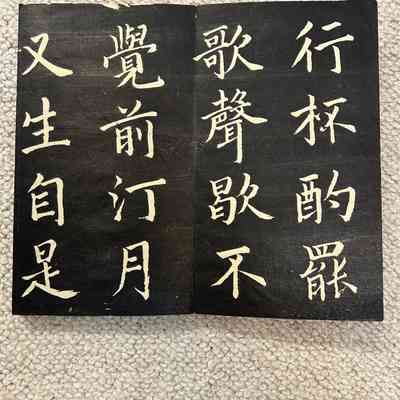 行杯酌罷
歌聲歇不
覺前汀月
又生自是